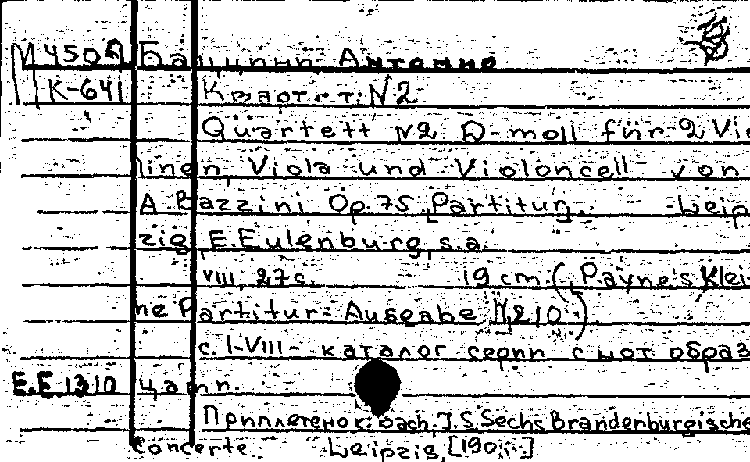 М 450А Баццини Антонио
К-641 Квартет N2
Quartett N2 D-moll für 2 Vio
linen, Viola und Violoncell von
A. Bazzini Op. 75. Partitur. Leip
zig, E. Eulenburg, s.a.
VIII, 27 с. 19 cm. (Payne's Klei
ne Partitur-Ausgabe N210)
с. I-VIII - каталог серии с нот образ
Е.Е. 1310 цами.
Приплетено к: Bach, J.S. Sechs Brandenburgische
Concerte. Leipzig,